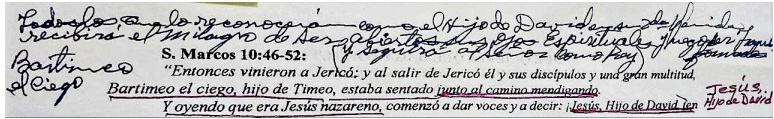 Todos los que lo reconocerán como el Hijo de David
recibirá el Milagro de Ser abiertos sus ojos Espirituales y luego
y seguirá al
S. Marcos 10:46-52:
Bartimeo
el Ciego
"Entonces vinieron a Jericó; y al salir de Jericó él y sus discípulos y una gran multitud,
Bartimeo el ciego, hijo de Timeo, estaba sentado junto al camino mendigando.
Y oyendo que era Jesús nazareno, comenzó a dar voces y a decir: ¡Jesús, Hijo de David ¡en
Jesús,
Hijo de David